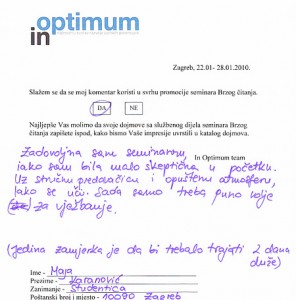 optimum
in
Zagreb, 22.01- 28.01.2010.
Slažem se da se moj komentar koristi u svrhu promocije seminara Brzog čitanja.
DA NE
Najljepše Vas molimo da svoje dojmove sa službenog dijela seminara Brzog
čitanja zapišete ispod, kako bismo Vaše impresije uvrstili u katalog dojmova.
In Optimum team
Zadovoljna sam seminarom,
iako sam bila malo skeptična u početku.
Uz stručnu predavačicu i opuštenu atmosferu,
lako se uči. Sada samo treba puno volje
za vježbanje.
(Jedina zamjerka je da bi trebalo trajati 2 dana
duže)
Ime - Maja
Prezime - Karanović
Zanimanje - Studentica
Poštanski broj i mjesto - 10090 Zagreb